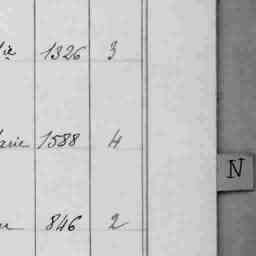 1326 3
arie 1588 4
N
846 2